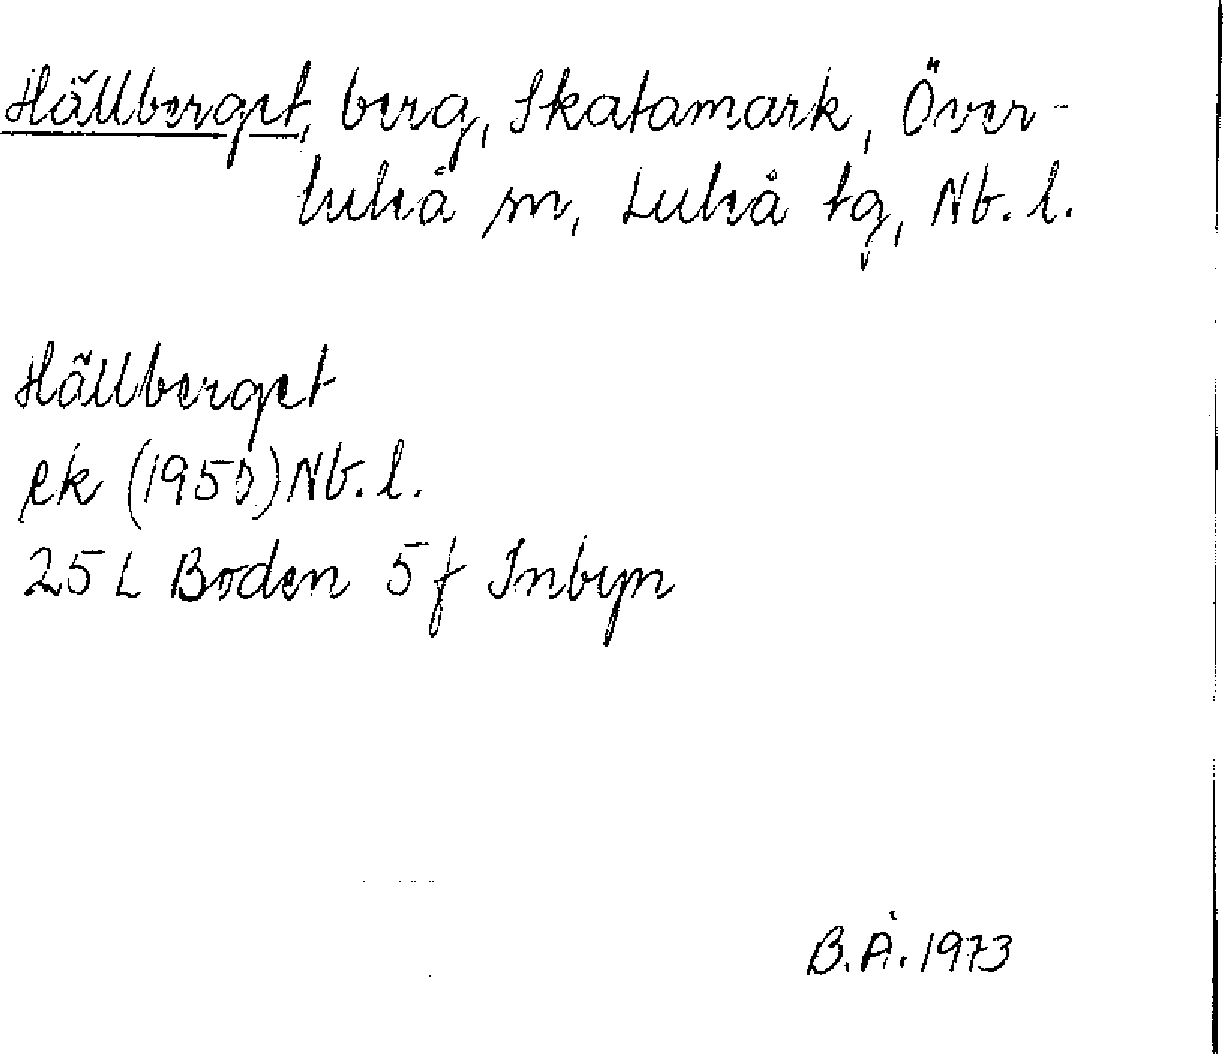 Hällberget, berg, Skatamark, Över-
luleå sn, Luleå tg, Nb. l.
Hällberget
ek (1950) Nb. l.
25 L Boden 5 f Inbyn
B.Å. 1973